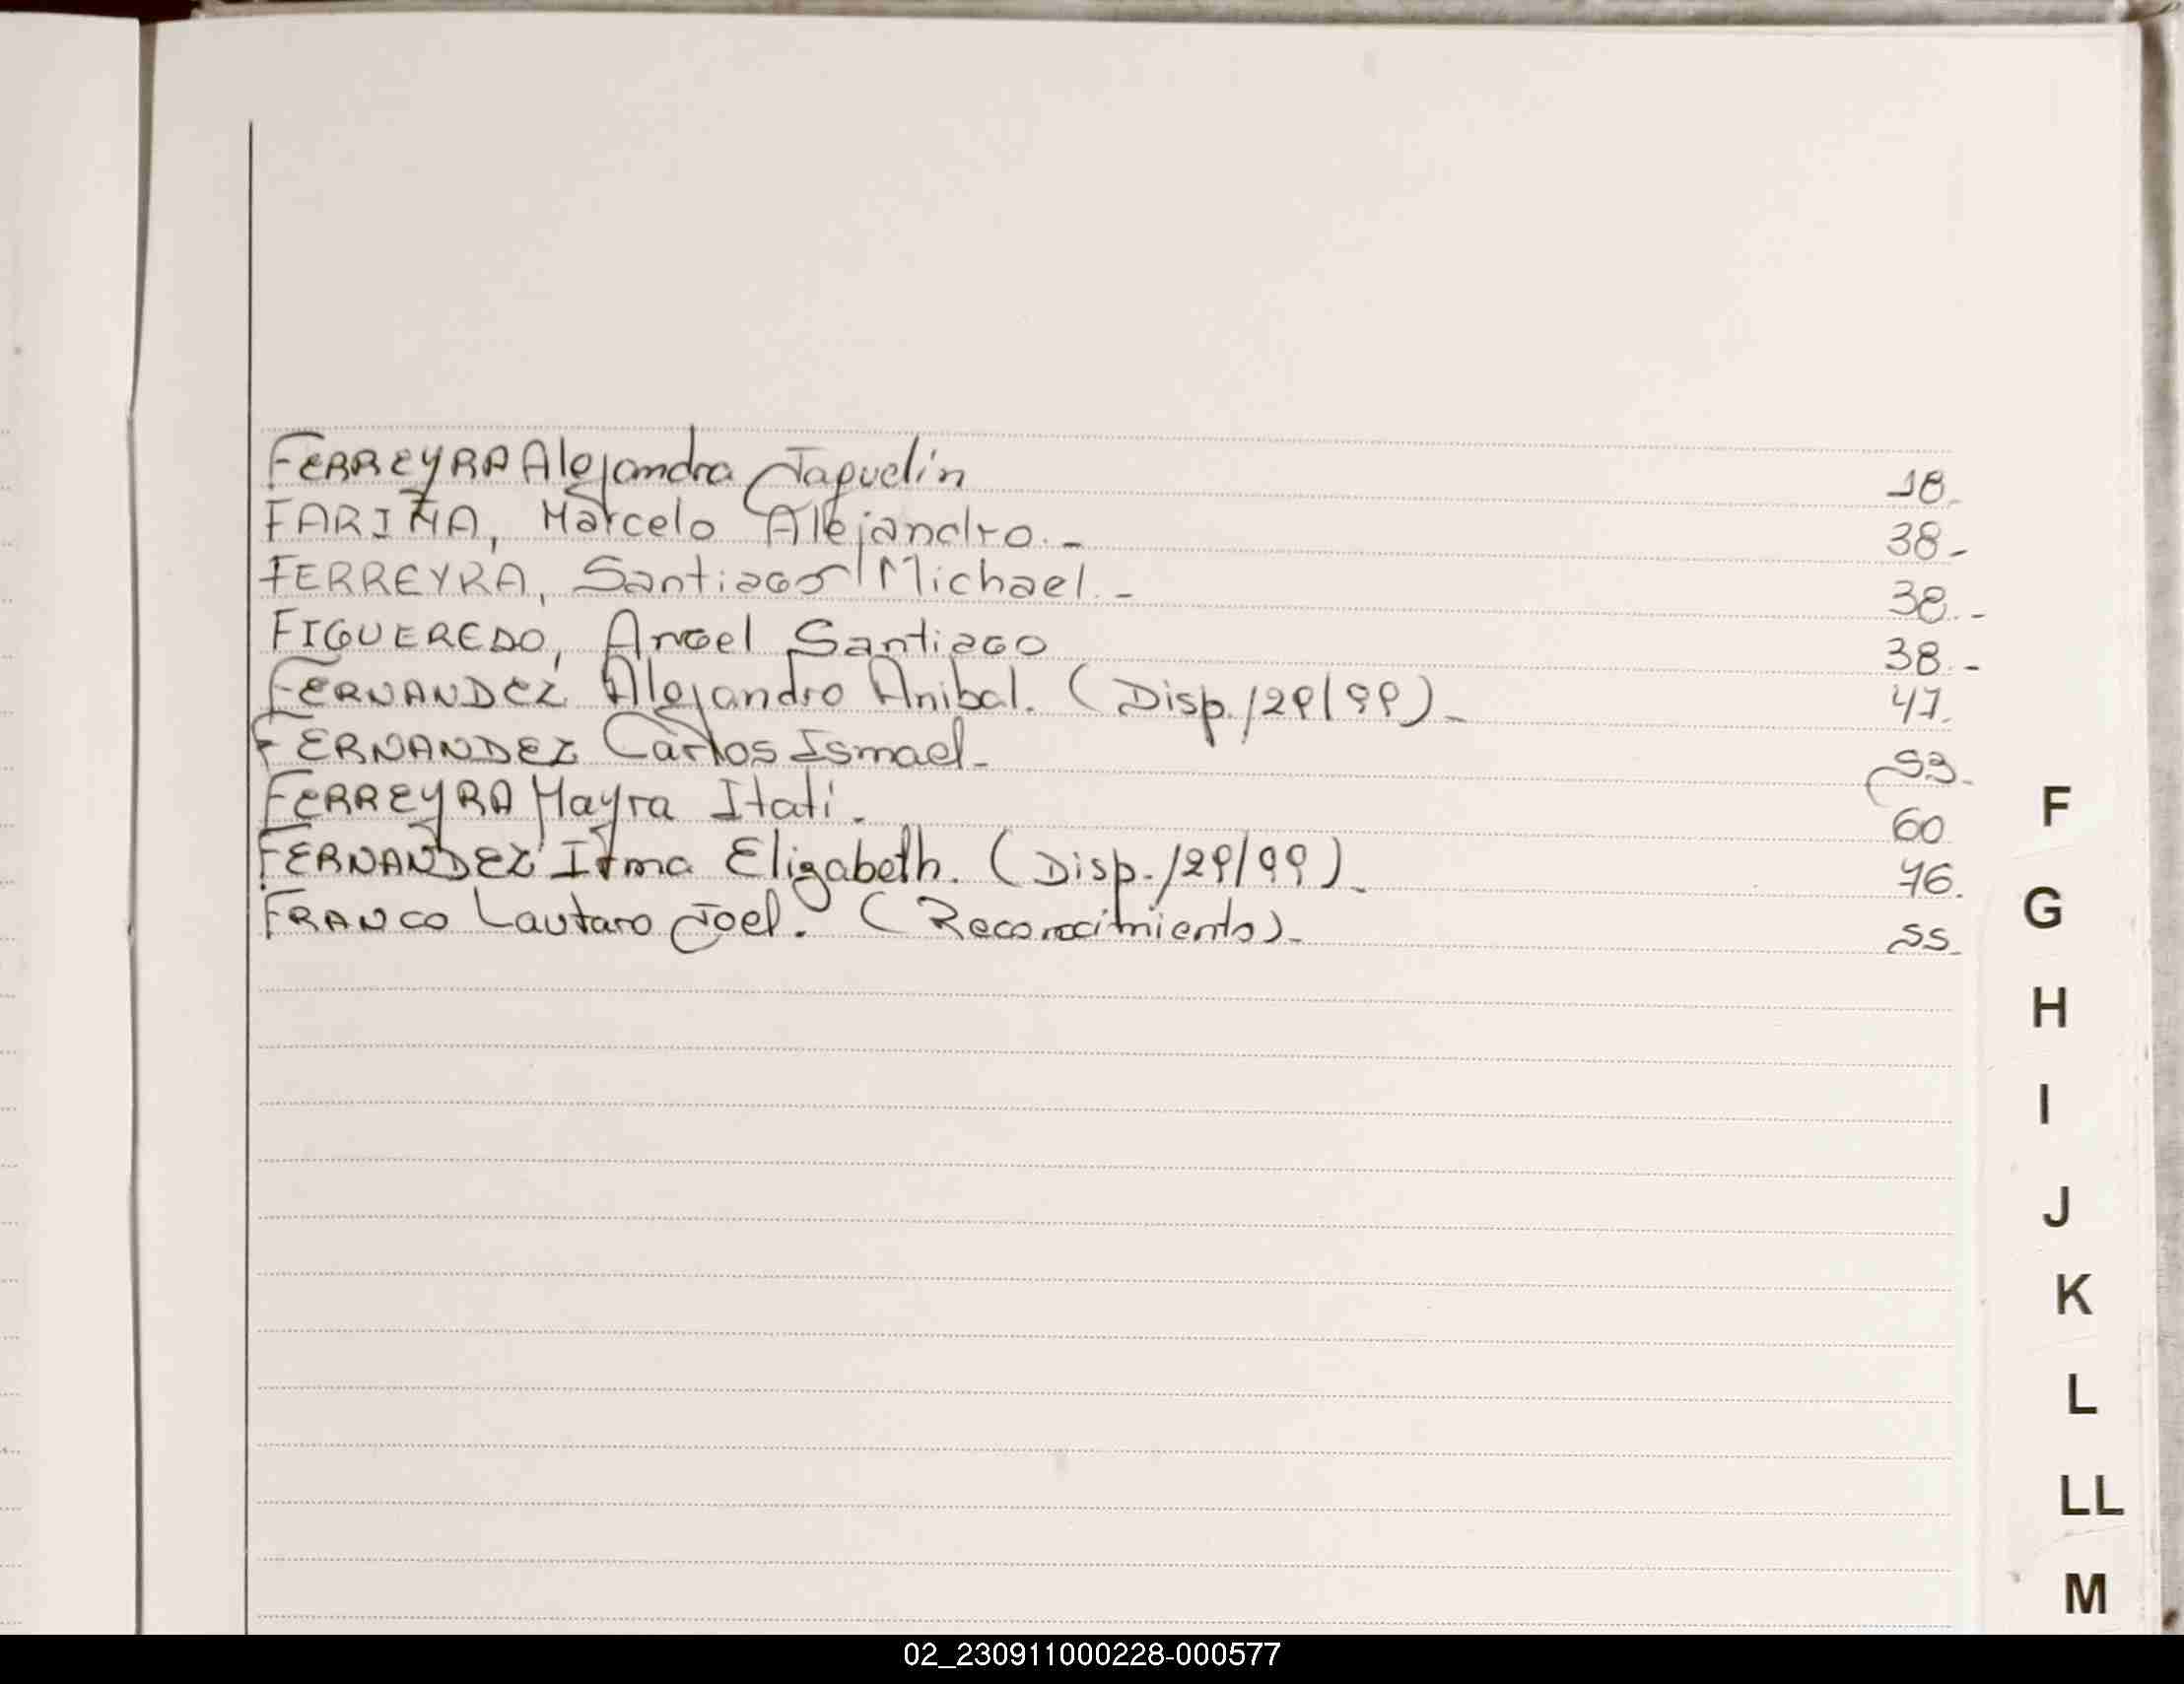 FERREYRA Alejandra Jaquelin 18.
FARIÑA, Marcelo Alejandro.- 38-
FERREYRA, Santiago Michael.- 38.-
FIGUEREDO, Angel Santiago 38.-
FERNANDEZ Alejandro Anibal. (Disp./29/99)- 47.
FERNANDEZ Carlos Ismael- 53.
FERREYRA Mayra Itati. 60
FERNANDEZ Irma Elizabeth. (Disp./29/99)- 76.
FRANCO Lautaro Joel. (Reconocimiento)- 55-
F
G
H
I
J
K
L
LL
M
02_230911000228-000577